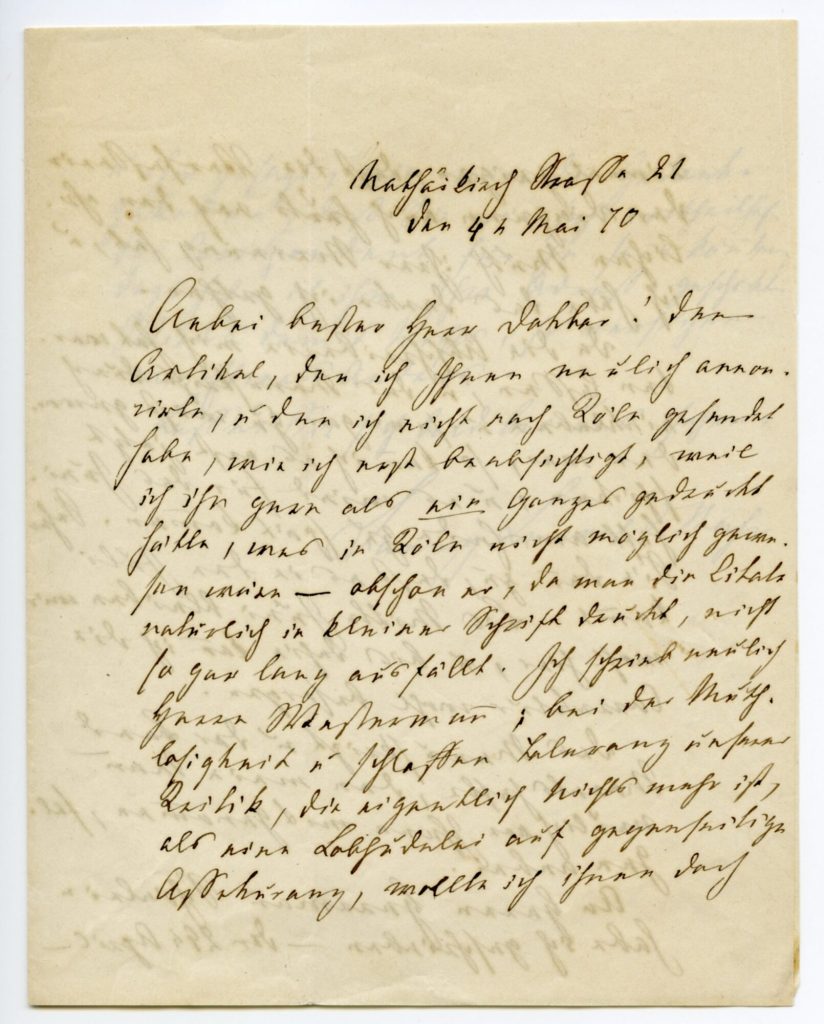 Mathäikirch Strasse 21
den 4 t Mai 70
Anbei bester Herr Doktor! den
Artikel, den ich Ihnen neulich annon-
cirte, u den ich nicht nach Köln gesendet
habe, wie ich erst beabsichtigt, weil
ich ihn gern als ein Ganzes gedruckt
hätte, was in Köln nicht möglich gewe-
sen wäre — obschon er, da man die Citate
natürlich in kleiner Schrift druckt, nicht
so gar lang ausfällt. Ich schrieb neulich
Herrn Westermann; bei der Muth-
losigkeit u schlaffen Toleranz unserer
Kritik, die eigentlich Nichts mehr ist,
als eine Lobhudelei auf gegenseitige
Assekuranz, wollte ich ihnen doch